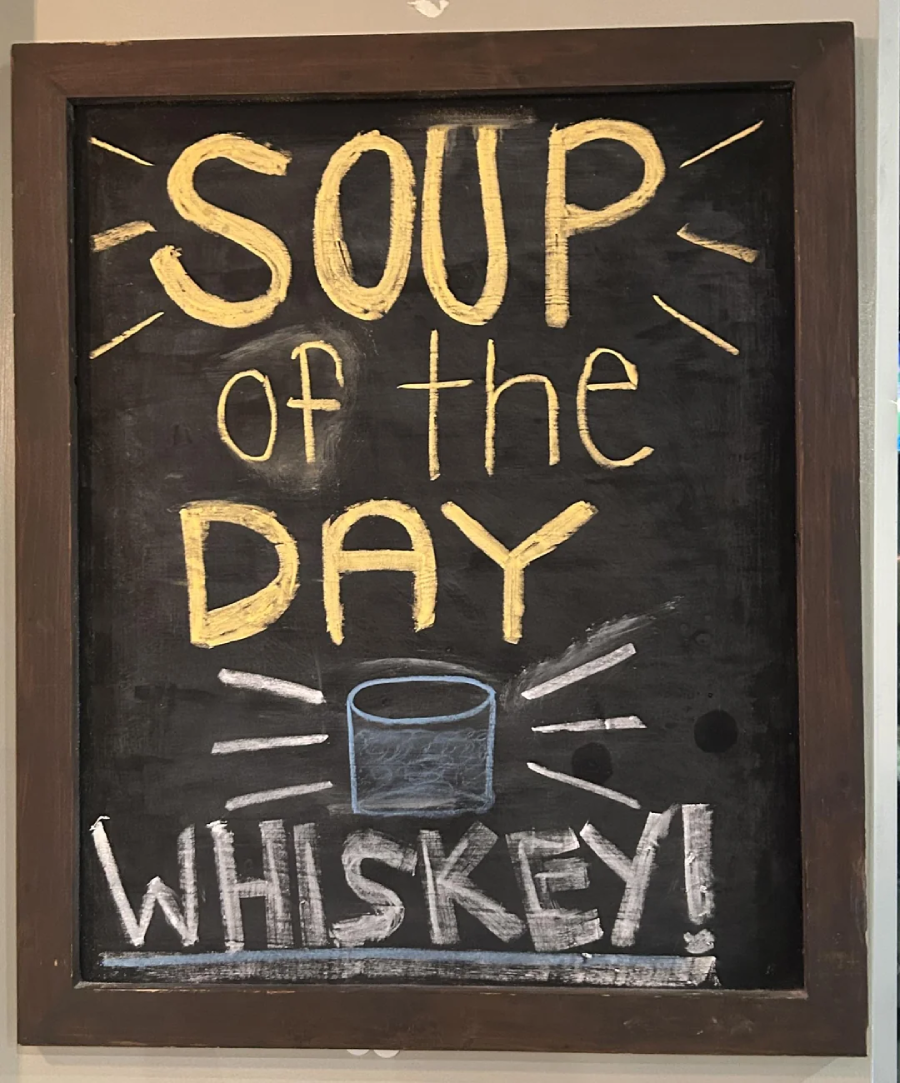 SOUP
of the
DAY
WHISKEY!